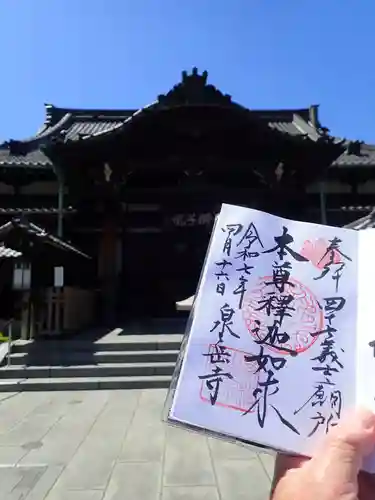 獅子吼
奉拝 四十七義士廟所
本尊釈迦如来
令和七年
四月十六日
泉岳寺